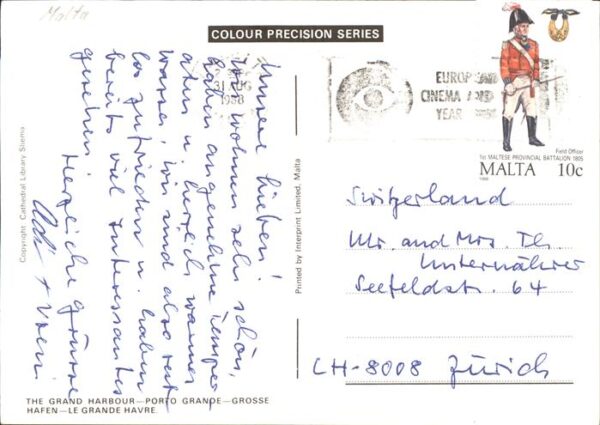 Malta
COLOUR PRECISION SERIES
31 AUG
1988
EUROPEAN
CINEMA AND
YEAR
Field Officer
1st MALTESE PROVINCIAL BATTALION 1805
MALTA 10c
1988
Unsere Lieben!
wir wohnen sehr schön,
haben angenehme Temper-
aturen u. herrlich warmes
Wasser, wir sind also restlos
zufrieden u. haben
bereits viel Interessantes
gesehen.
Herzliche Grüsse
Adi + Vreni
Copyright Cathedral Library Sliema
Printed by Interprint Limited, Malta
Switzerland
Mr. and Mrs. Th.
Unternährer
Seefeldstr. 64
CH-8008 Zürich
THE GRAND HARBOUR—PORTO GRANDE—GROSSE
HAFEN—LE GRANDE HAVRE.